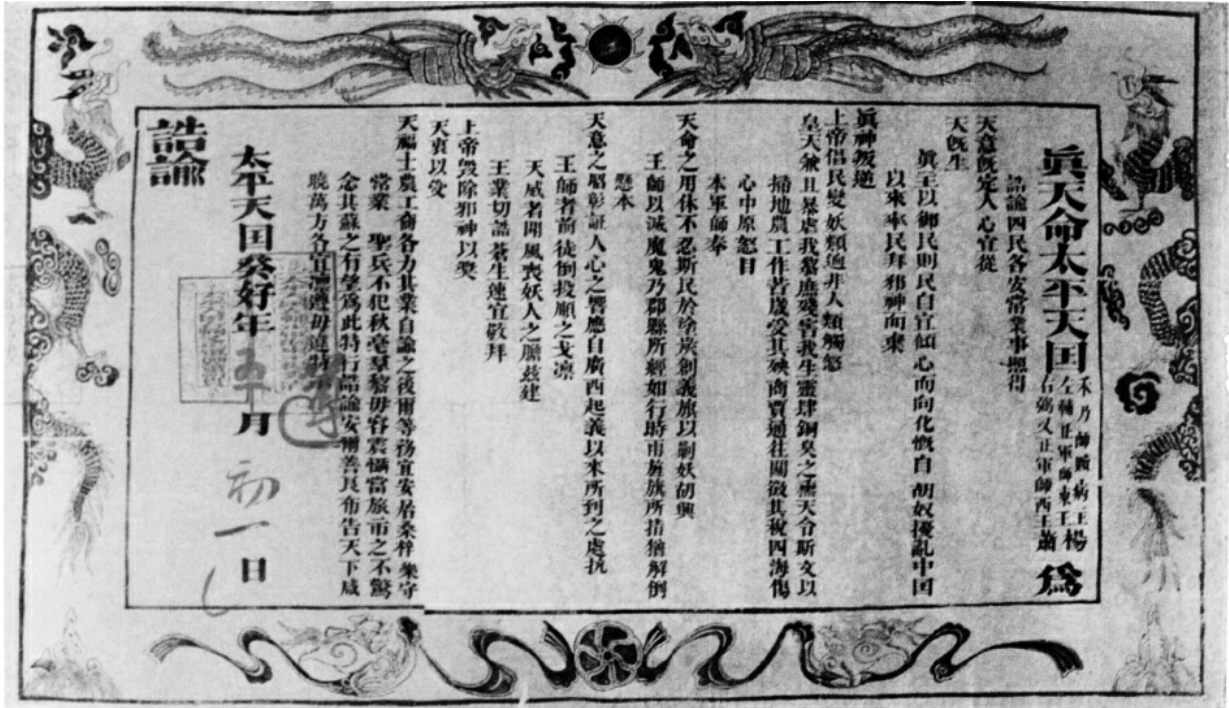 眞天命太平天囯
禾乃師贖病主
左輔正軍師東王楊
右弼又正軍師西王蕭
爲
誥諭四民各安常業事照得
天意既定人心宜從
天既生
眞主以御民則民自宜傾心而向化慨自 胡奴擾亂中囯
以來率民拜邪神而棄
眞神叛逆
上帝倡民變妖類迥非人類觸怒
皇天兼且暴虐我黎庶殘害我生靈肆銅臭之熏天令斯文以
掃地農工作苦歲受其殃商賈通往關徵其稅四海傷
心中原怒目
本軍師奉
天命之用休不忍斯民於塗炭創義旅以剿妖胡興
王師以滅魔鬼乃郡縣所經如行時雨旌旗所指猶解倒
懸本
天意之屬彰証人心之響應自廣西起義以來所到之處抗
王師者前徒倒投順之戈凛
天威者聞風喪妖人之膽茲建
王業切誥蒼生速宜敬拜
上帝毀除邪神以奬
天衷以受
天福士農工商各力其業自諭之後爾等務宜安居桑梓樂守
常業 聖兵不犯秋毫羣黎毋容震懾當旅市之不驚
念其蘇之有望爲此特行誥諭安爾善良布告天下咸
曉萬方各宜凛遵毋違特示
太平天囯癸好年五月初一日
誥諭